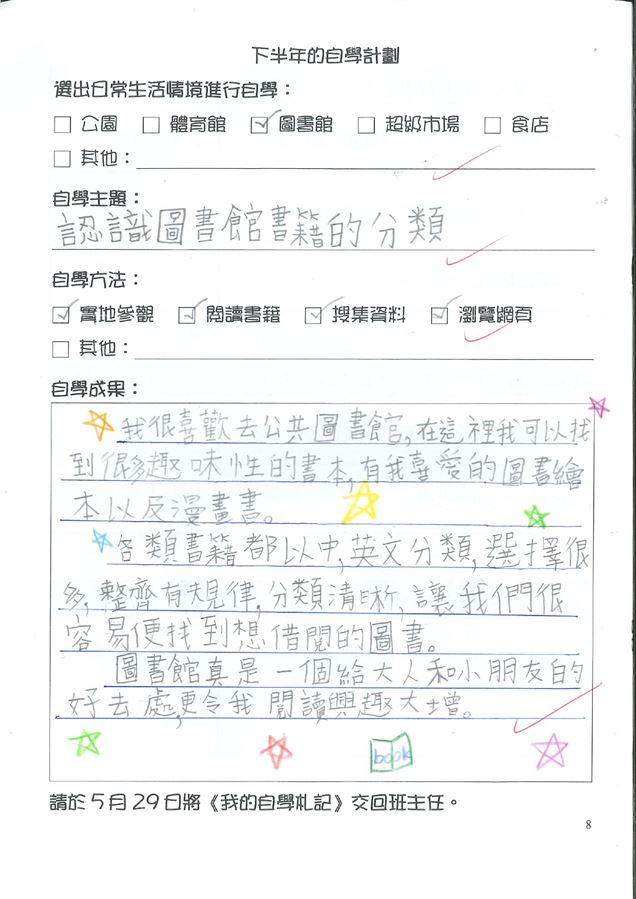 下半年的自學計劃
選出日常生活情境進行自學：
公園 體育館 圖書館 超級市場 食店
其他：
自學主題：
認識圖書館書籍的分類
自學方法：
實地參觀 閱讀書籍 搜集資料 瀏覽網頁
其他：
自學成果：
我很喜歡去公共圖書館,在這裡我可以找
到很多趣味性的書本,有我喜愛的圖書繪
本以及漫畫書。
各類書籍都以中,英文分類,選擇很
多,整齊有規律,分類清晰,讓我們很
容易便找到想借閱的圖書。
圖書館真是一個給大人和小朋友的
好去處,更令我閱讀興趣大增。
book
請於5月29日將《我的自學札記》交回班主任。
8